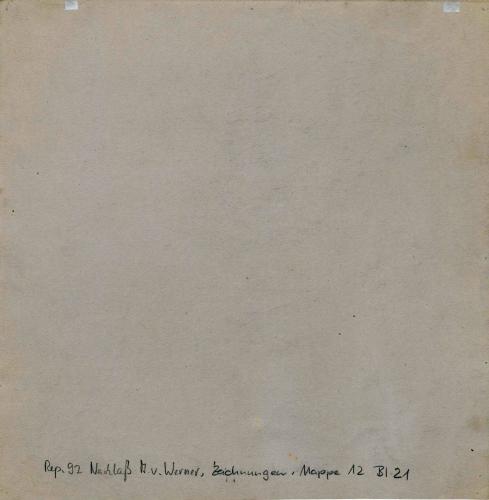 Rep. 92 Nachlaß A. v. Werner, Zeichnungen, Mappe 12 Bl. 21